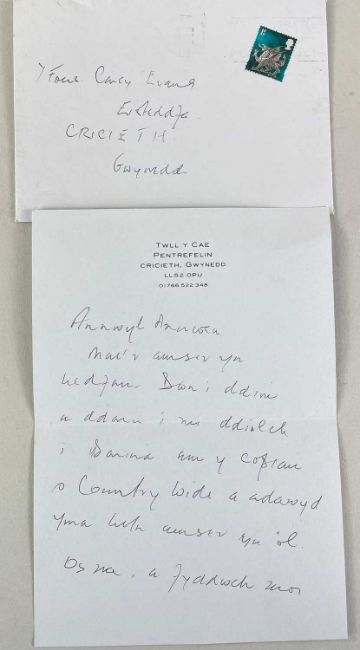 E
Y Carey Evans
Eisteddfa
CRICIETH
Gwynedd
TWLL Y CAE
PENTREFELIN
CRICIETH, GWYNEDD
LL52 0PU
01766 522 348
Annwyl
Mae'r amser yn
hedfan. Dwn i ddim
a ddaru i mi ddiolch
i am y copïau
o Country Wide a adawyd
yma beth amser yn ôl.
Os na, a fyddwch mor